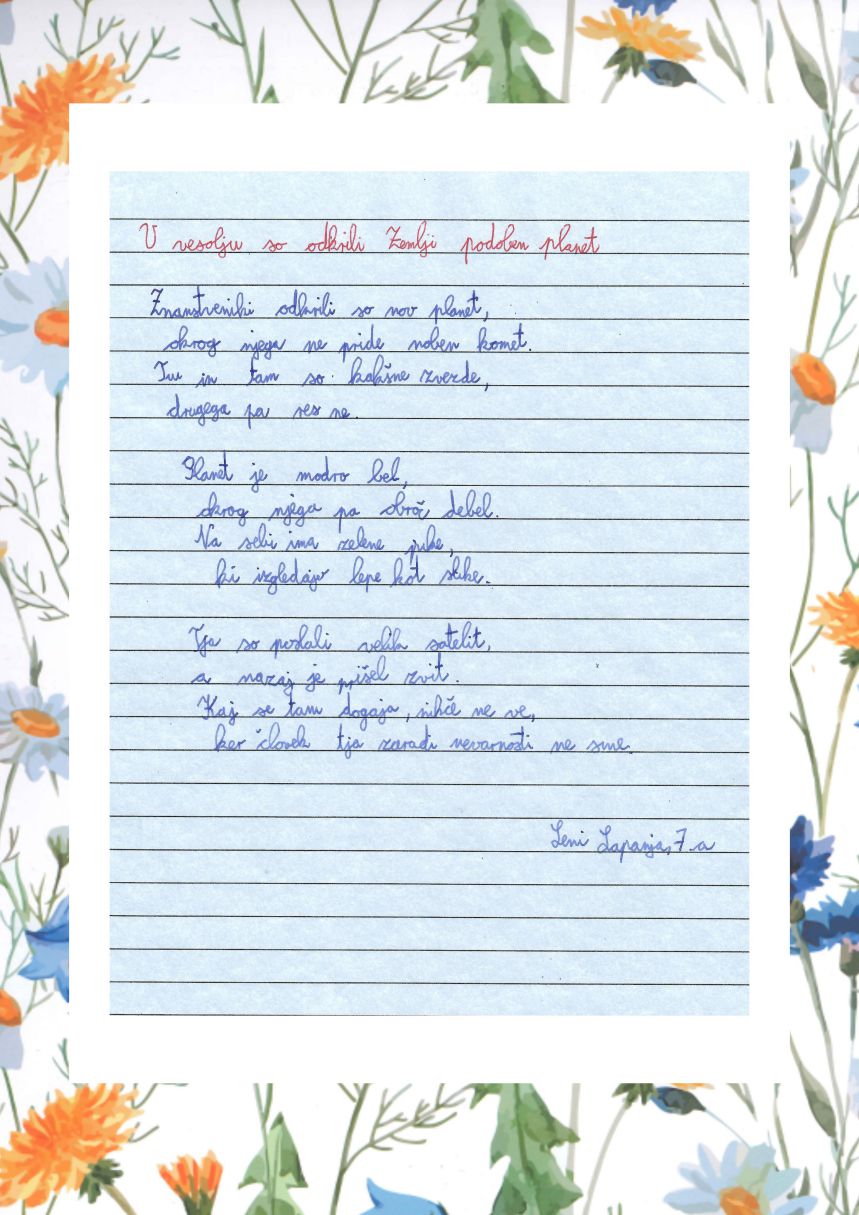 V vesolju so odkrili Zemlji podoben planet
Znanstveniki odkrili so nov planet,
okrog njega ne pride noben komet.
Tu in tam so kakšne zvezde,
drugega pa res ne.
Planet je modro bel,
okrog njega pa obroč debel.
Na sebi ima zelene pike,
ki izgledajo lepe kot slike.
Tja so poslali velik satelit,
a nazaj je prišel zvit.
Kaj se tam dogaja, nihče ne ve,
ker človek tja zaradi nevarnosti ne sme.
Leni Lapanja, 7. a